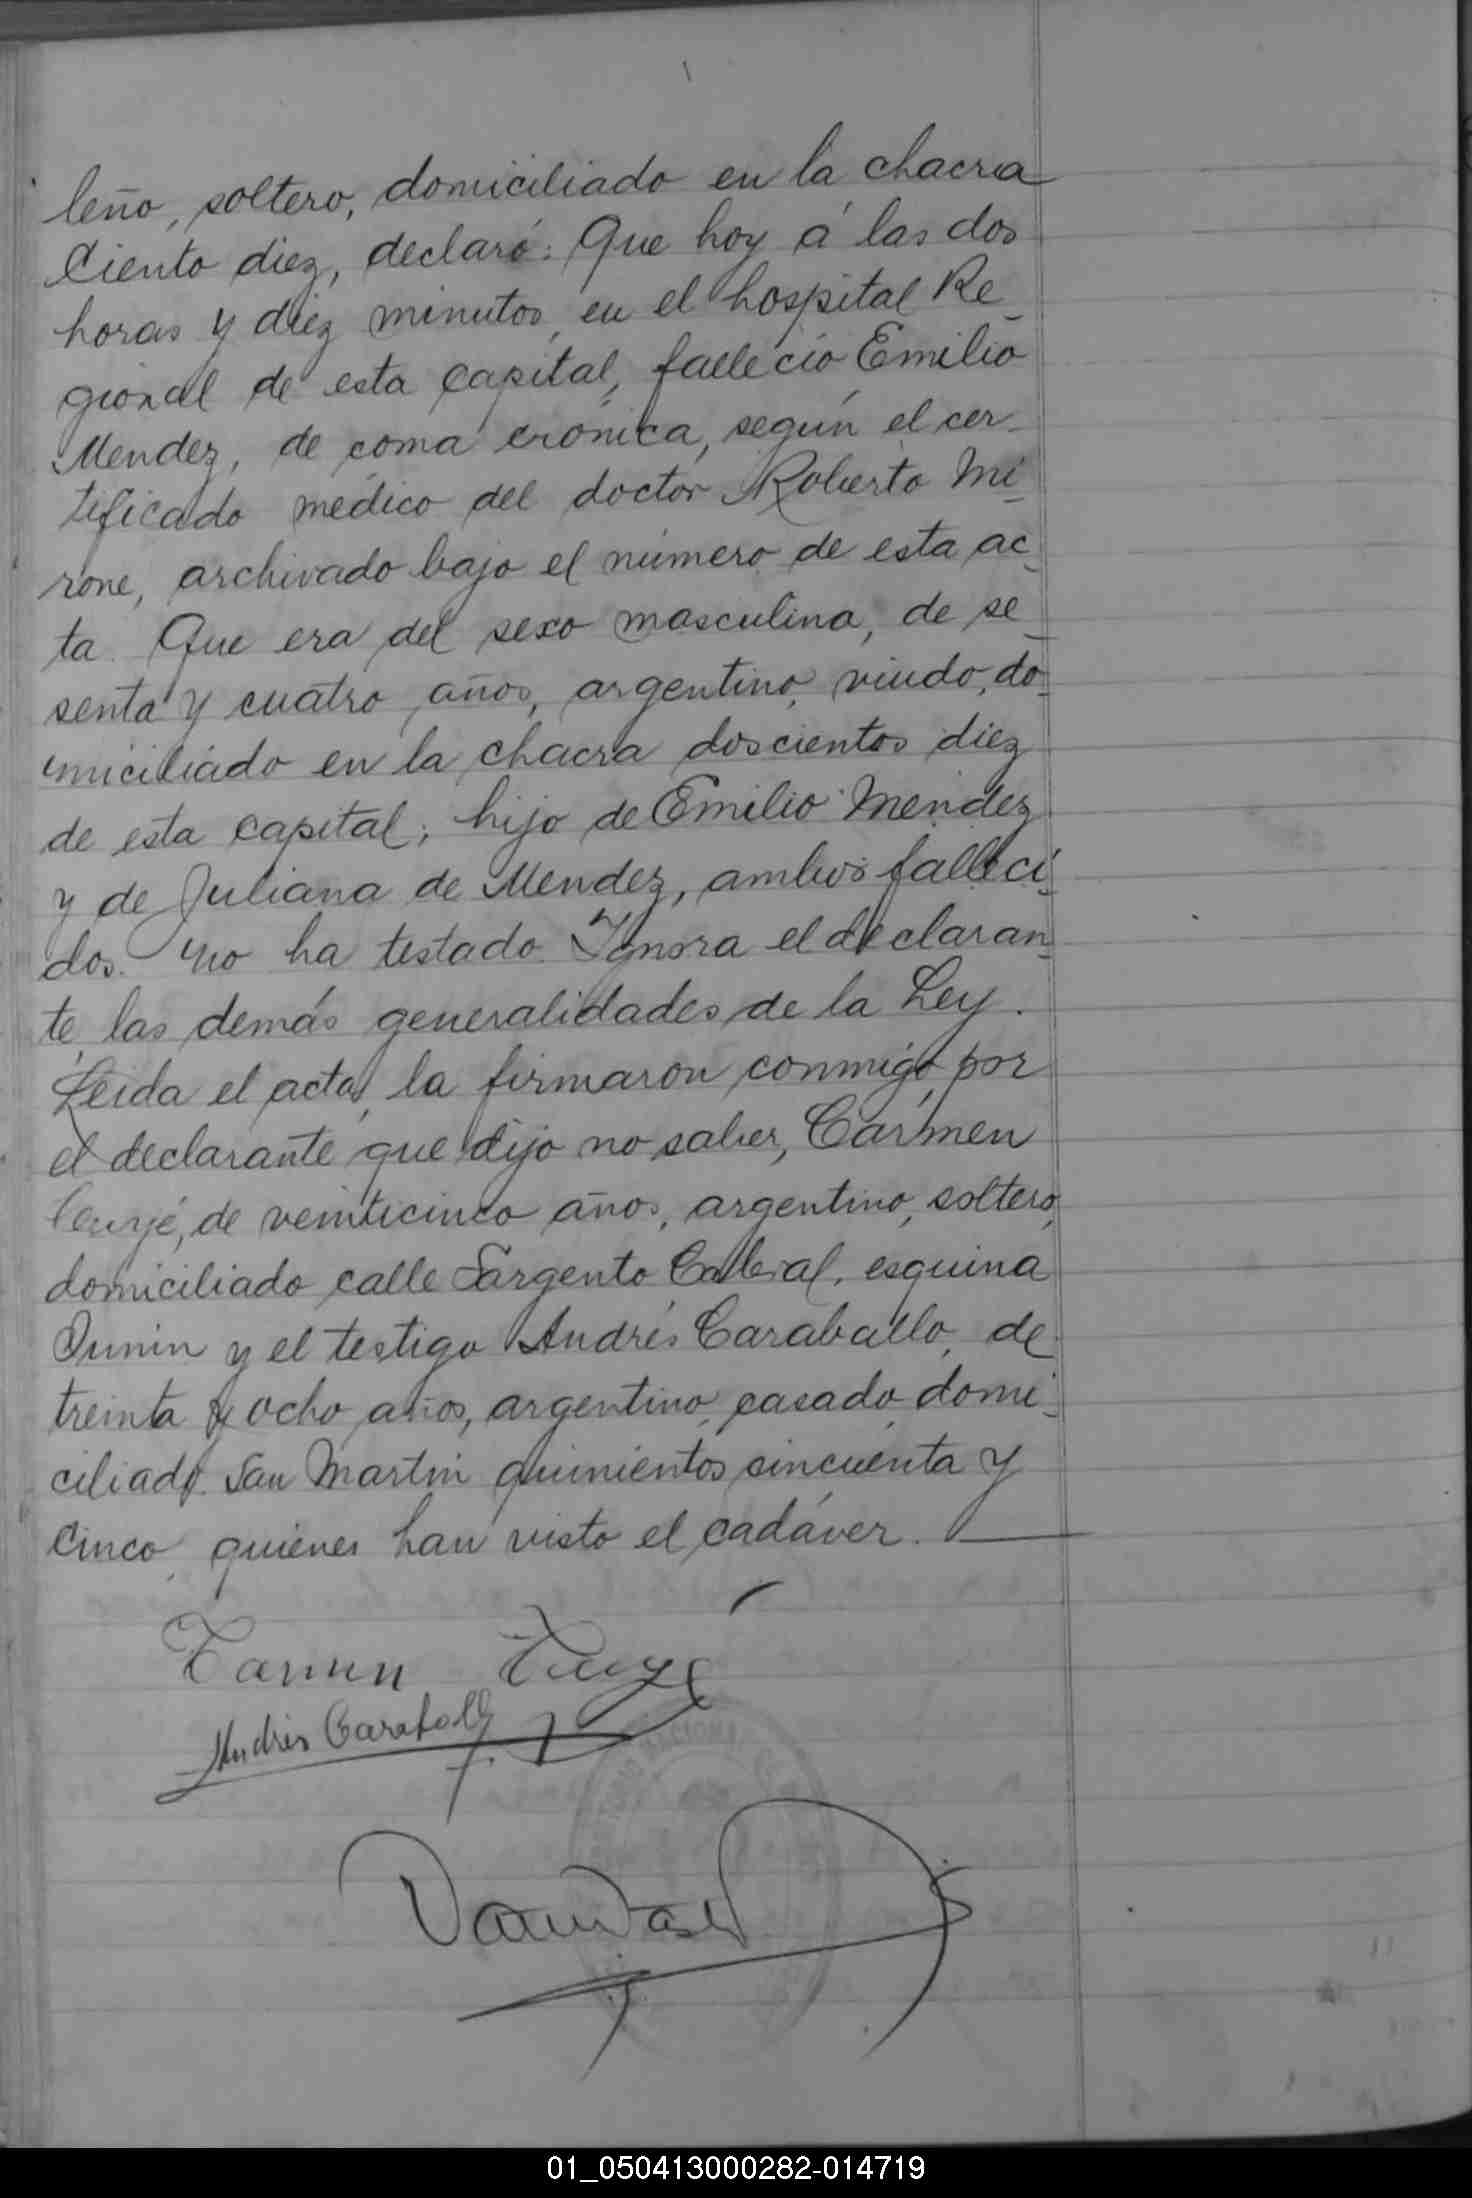 leño, soltero, domiciliado en la chacra
Ciento diez, declaró: Que hoy á las dos
horas y diez minutos, en el hospital Re_
gional de esta capital, falleció Emilio
Mendez, de coma crónica, según el cer_
tificado médico del doctor Roberto Mi_
rone, archivado bajo el número de esta ac_
ta. Que era del sexo masculino, de se_
senta y cuatro años, argentino, viudo, do_
miciliado en la chacra doscientos diez
de esta capital; hijo de Emilio Mendez
y de Juliana de Mendez, ambos falleci_
dos. No ha testado. Ignora el declaran_
te, las demás generalidades de la Ley.
Leida el acta, la firmaron conmigo, por
el declarante que dijo no saber, Carmen
de veinticinco años, argentino, soltero,
domiciliado calle Sargento Cabral, esquina
Junin y el testigo Andrés Caraballo, de
treinta y ocho años, argentino, casado, domi_
ciliado San Martin quinientos cincuenta y
cinco, quienes han visto el cadáver.
Carmen
Andres Caraballo
01_050413000282-014719